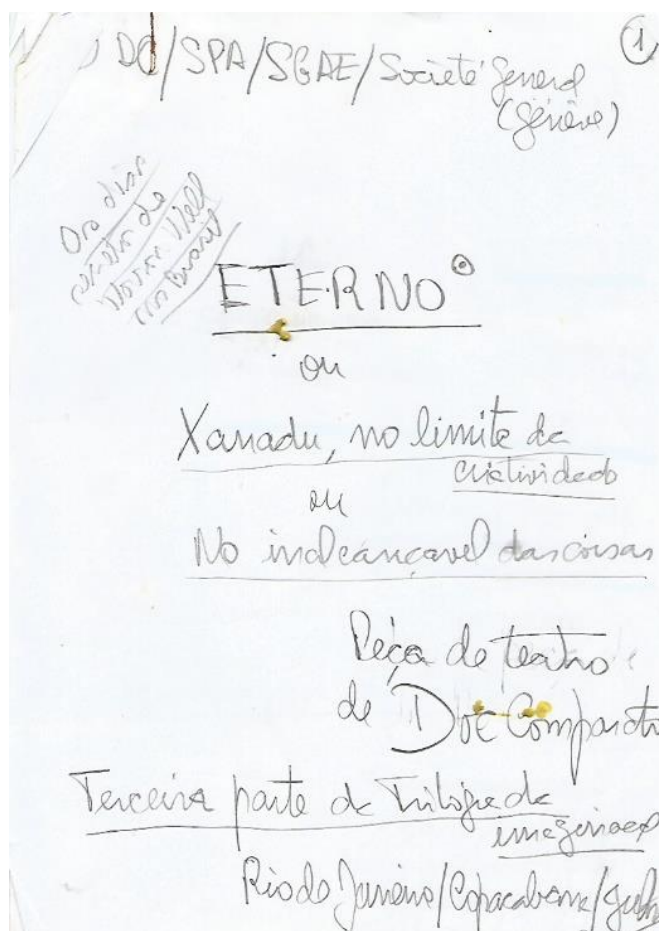 DC/SPA/SGAE/Societé General
(Génève)
1
ETERNO
ou
Xanadu, no limite da
criatividade
ou
No inalcançavel das coisas
Peça de teatro
de Doc Comparato
Terceira parte da Trilogia da
imaginação
Rio de Janeiro/Copacabana/